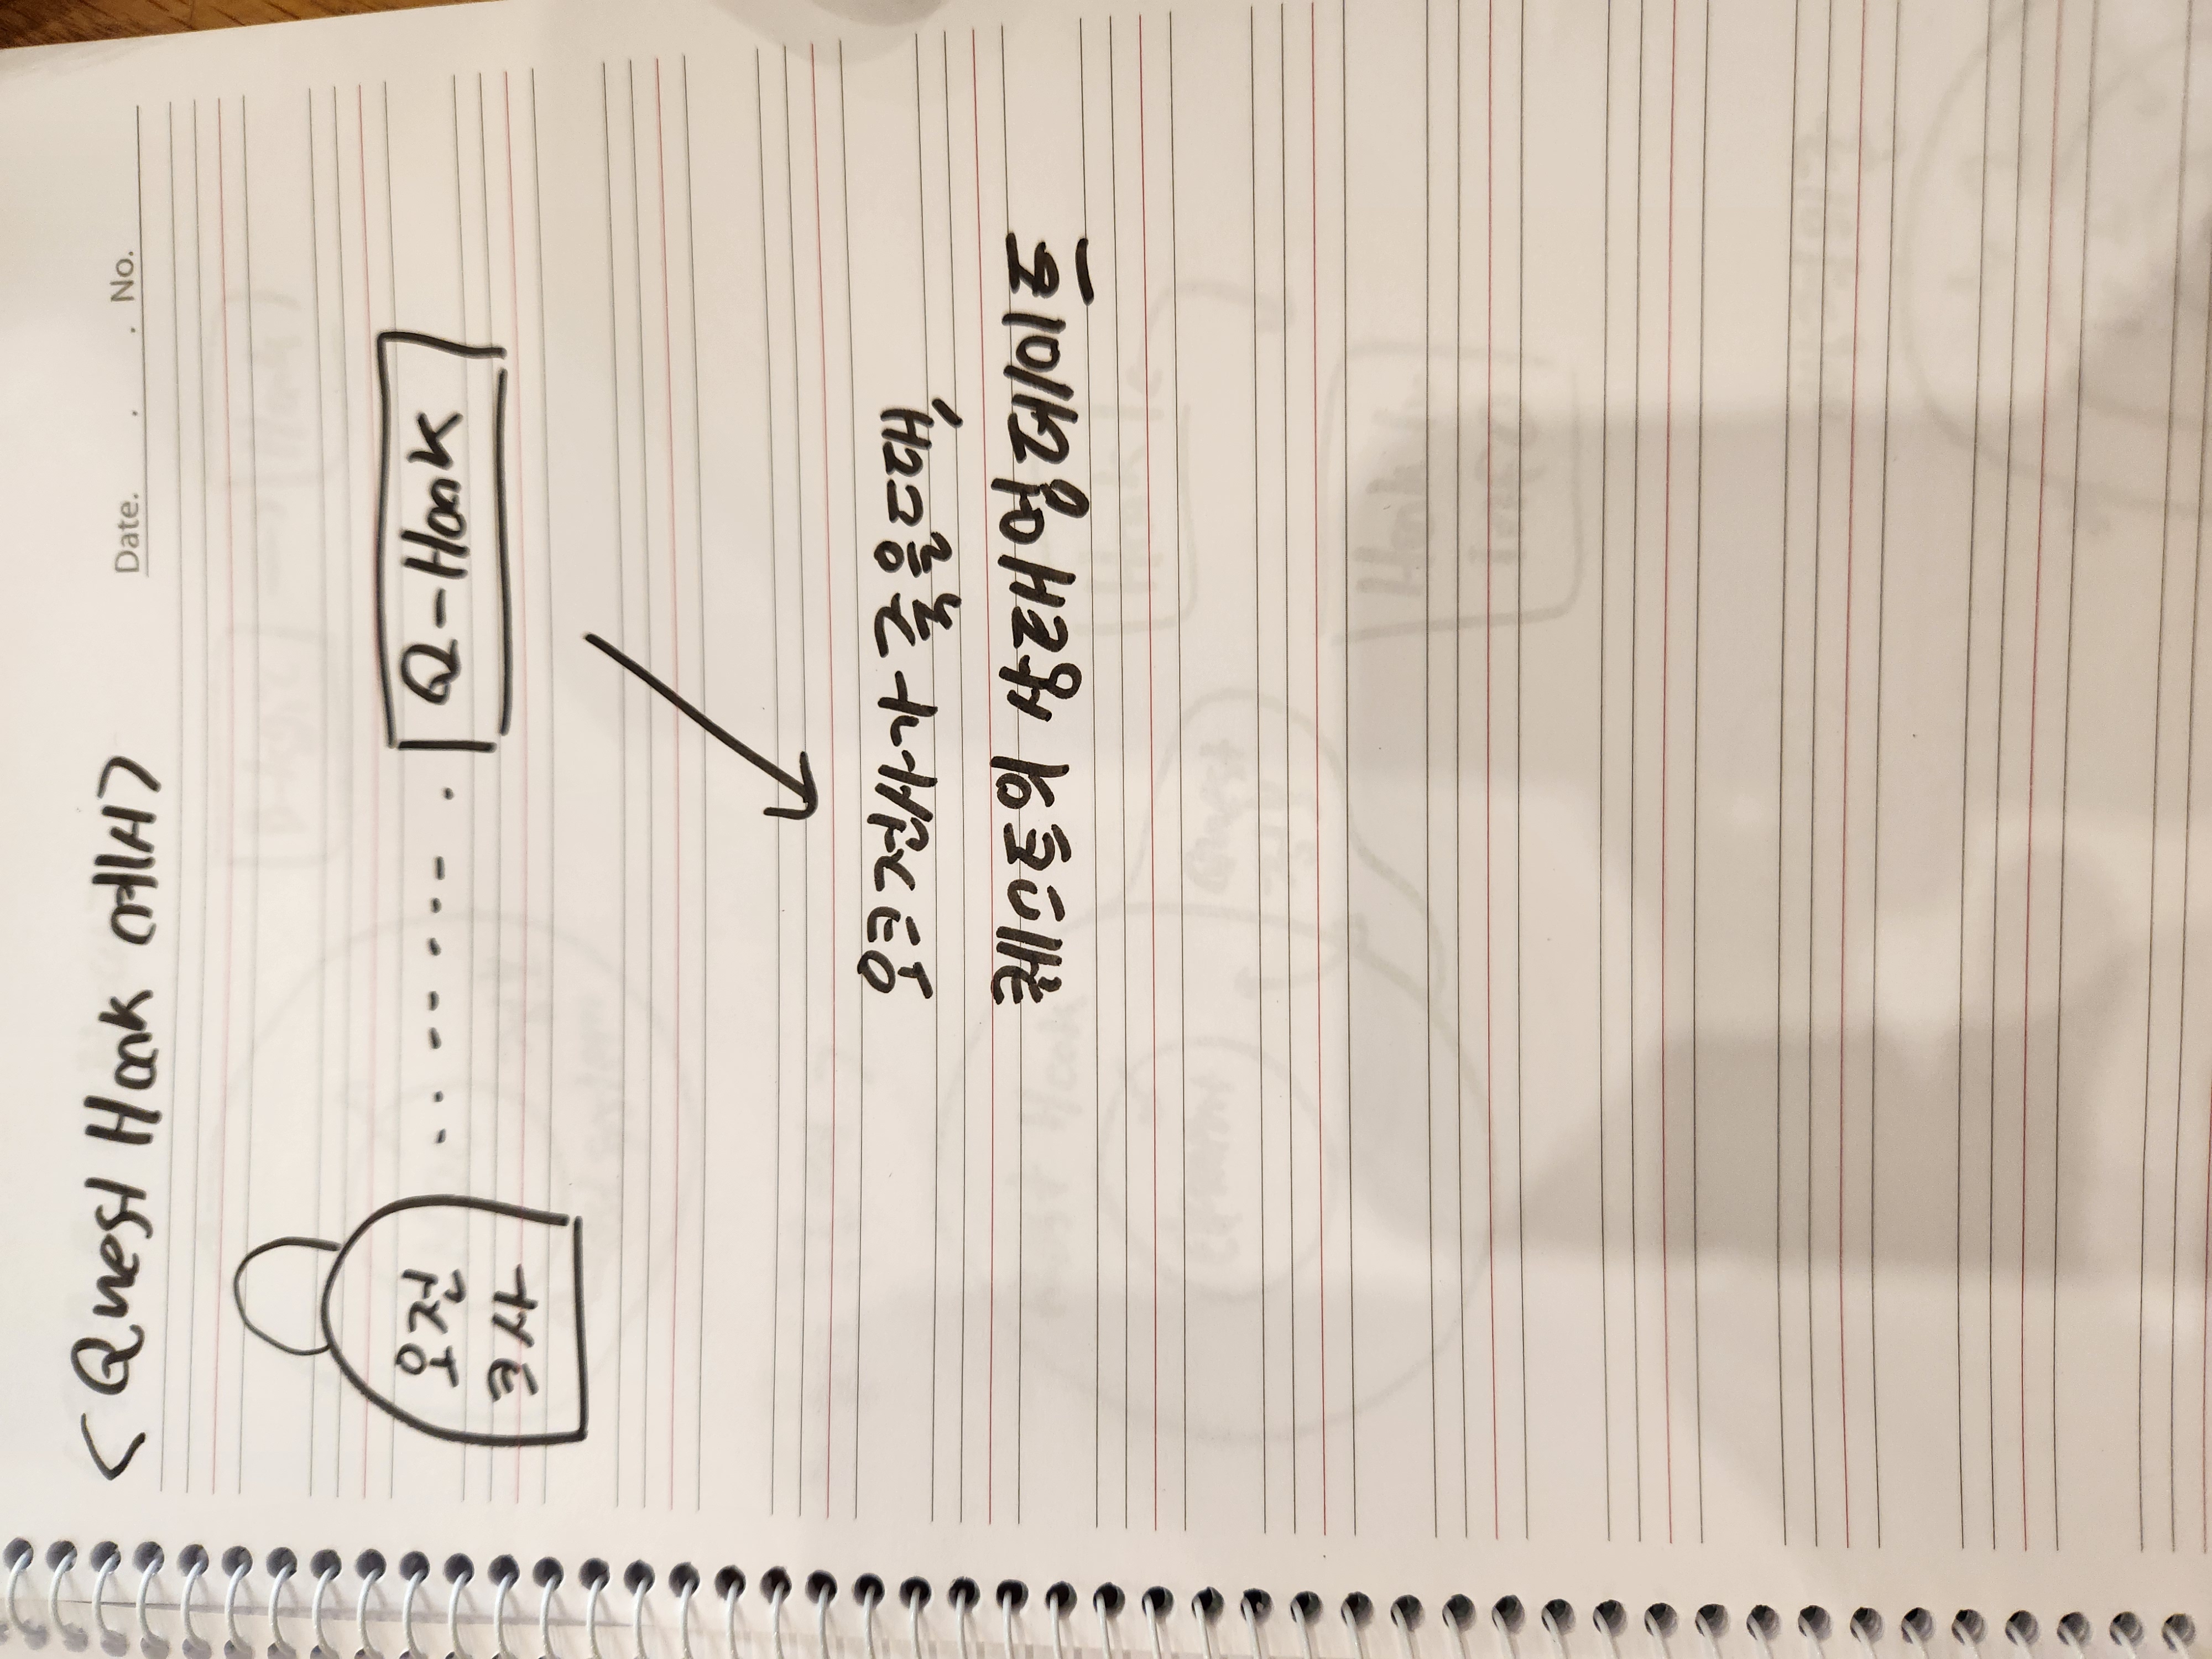 < Quest Hook 예시>
Date. . . No.
오전
크사
Q-Hook
오크전사가 죽을때,
퀘스트의 상태 업데이트